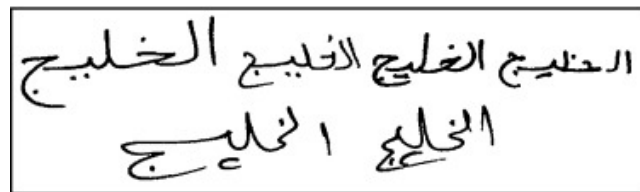 الخليج الخليج الخليج الخليج
الخليج الخليج